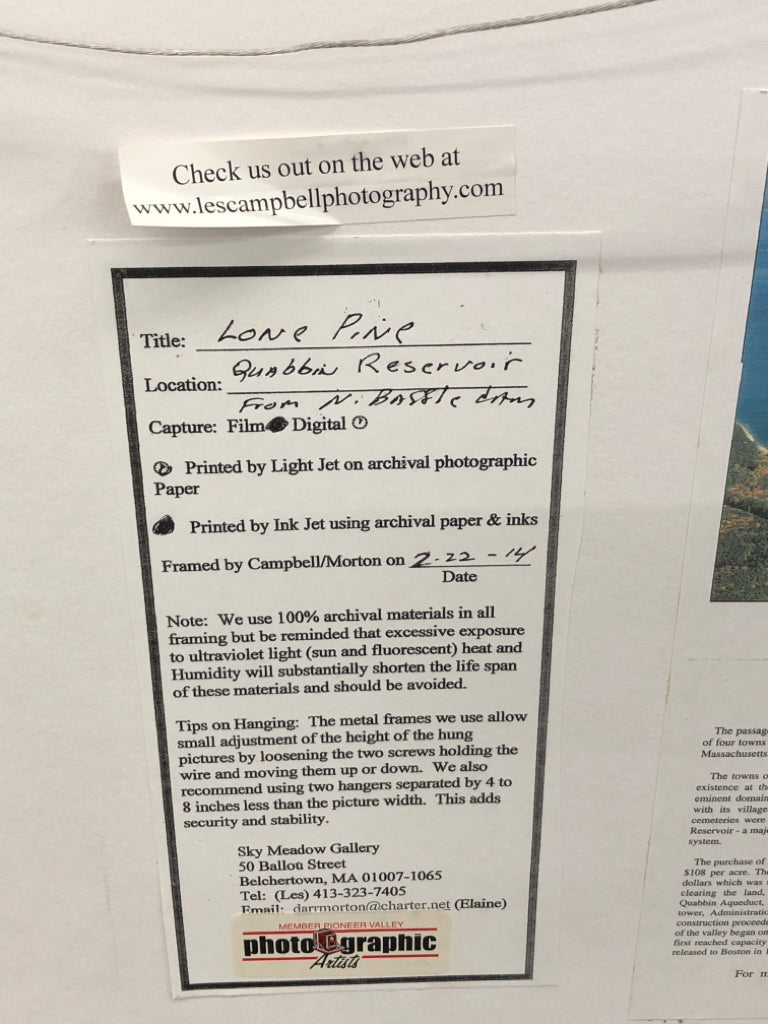 Check us out on the web at
www.lescampbellphotography.com
Title: Lone Pine
Location: Quabbin Reservoir
From N. Baffle dam
Capture: Film Digital
Printed by Light Jet on archival photographic
Paper
Printed by Ink Jet using archival paper & inks
Framed by Campbell/Morton on 2-22-14
Date
Note: We use 100% archival materials in all
framing but be reminded that excessive exposure
to ultraviolet light (sun and fluorescent) heat and
Humidity will substantially shorten the life span
of these materials and should be avoided.
Tips on Hanging: The metal frames we use allow
small adjustment of the height of the hung
pictures by loosening the two screws holding the
wire and moving them up or down. We also
recommend using two hangers separated by 4 to
8 inches less than the picture width. This adds
security and stability.
Sky Meadow Gallery
50 Ballou Street
Belchertown, MA 01007-1065
Tel: (Les) 413-323-7405
Email: darrmorton@charter.net (Elaine)
MEMBER PIONEER VALLEY
photographic
Artists
The passage
of four towns
Massachusetts
The towns o
existence at th
eminent domain
with its village
cemeteries were
Reservoir - a maj
system.
The purchase of
$108 per acre. The
dollars which was
clearing the land,
Quabbin Aqueduct,
tower, Administratio
construction proceede
of the valley began on
first reached capacity
released to Boston in
For m